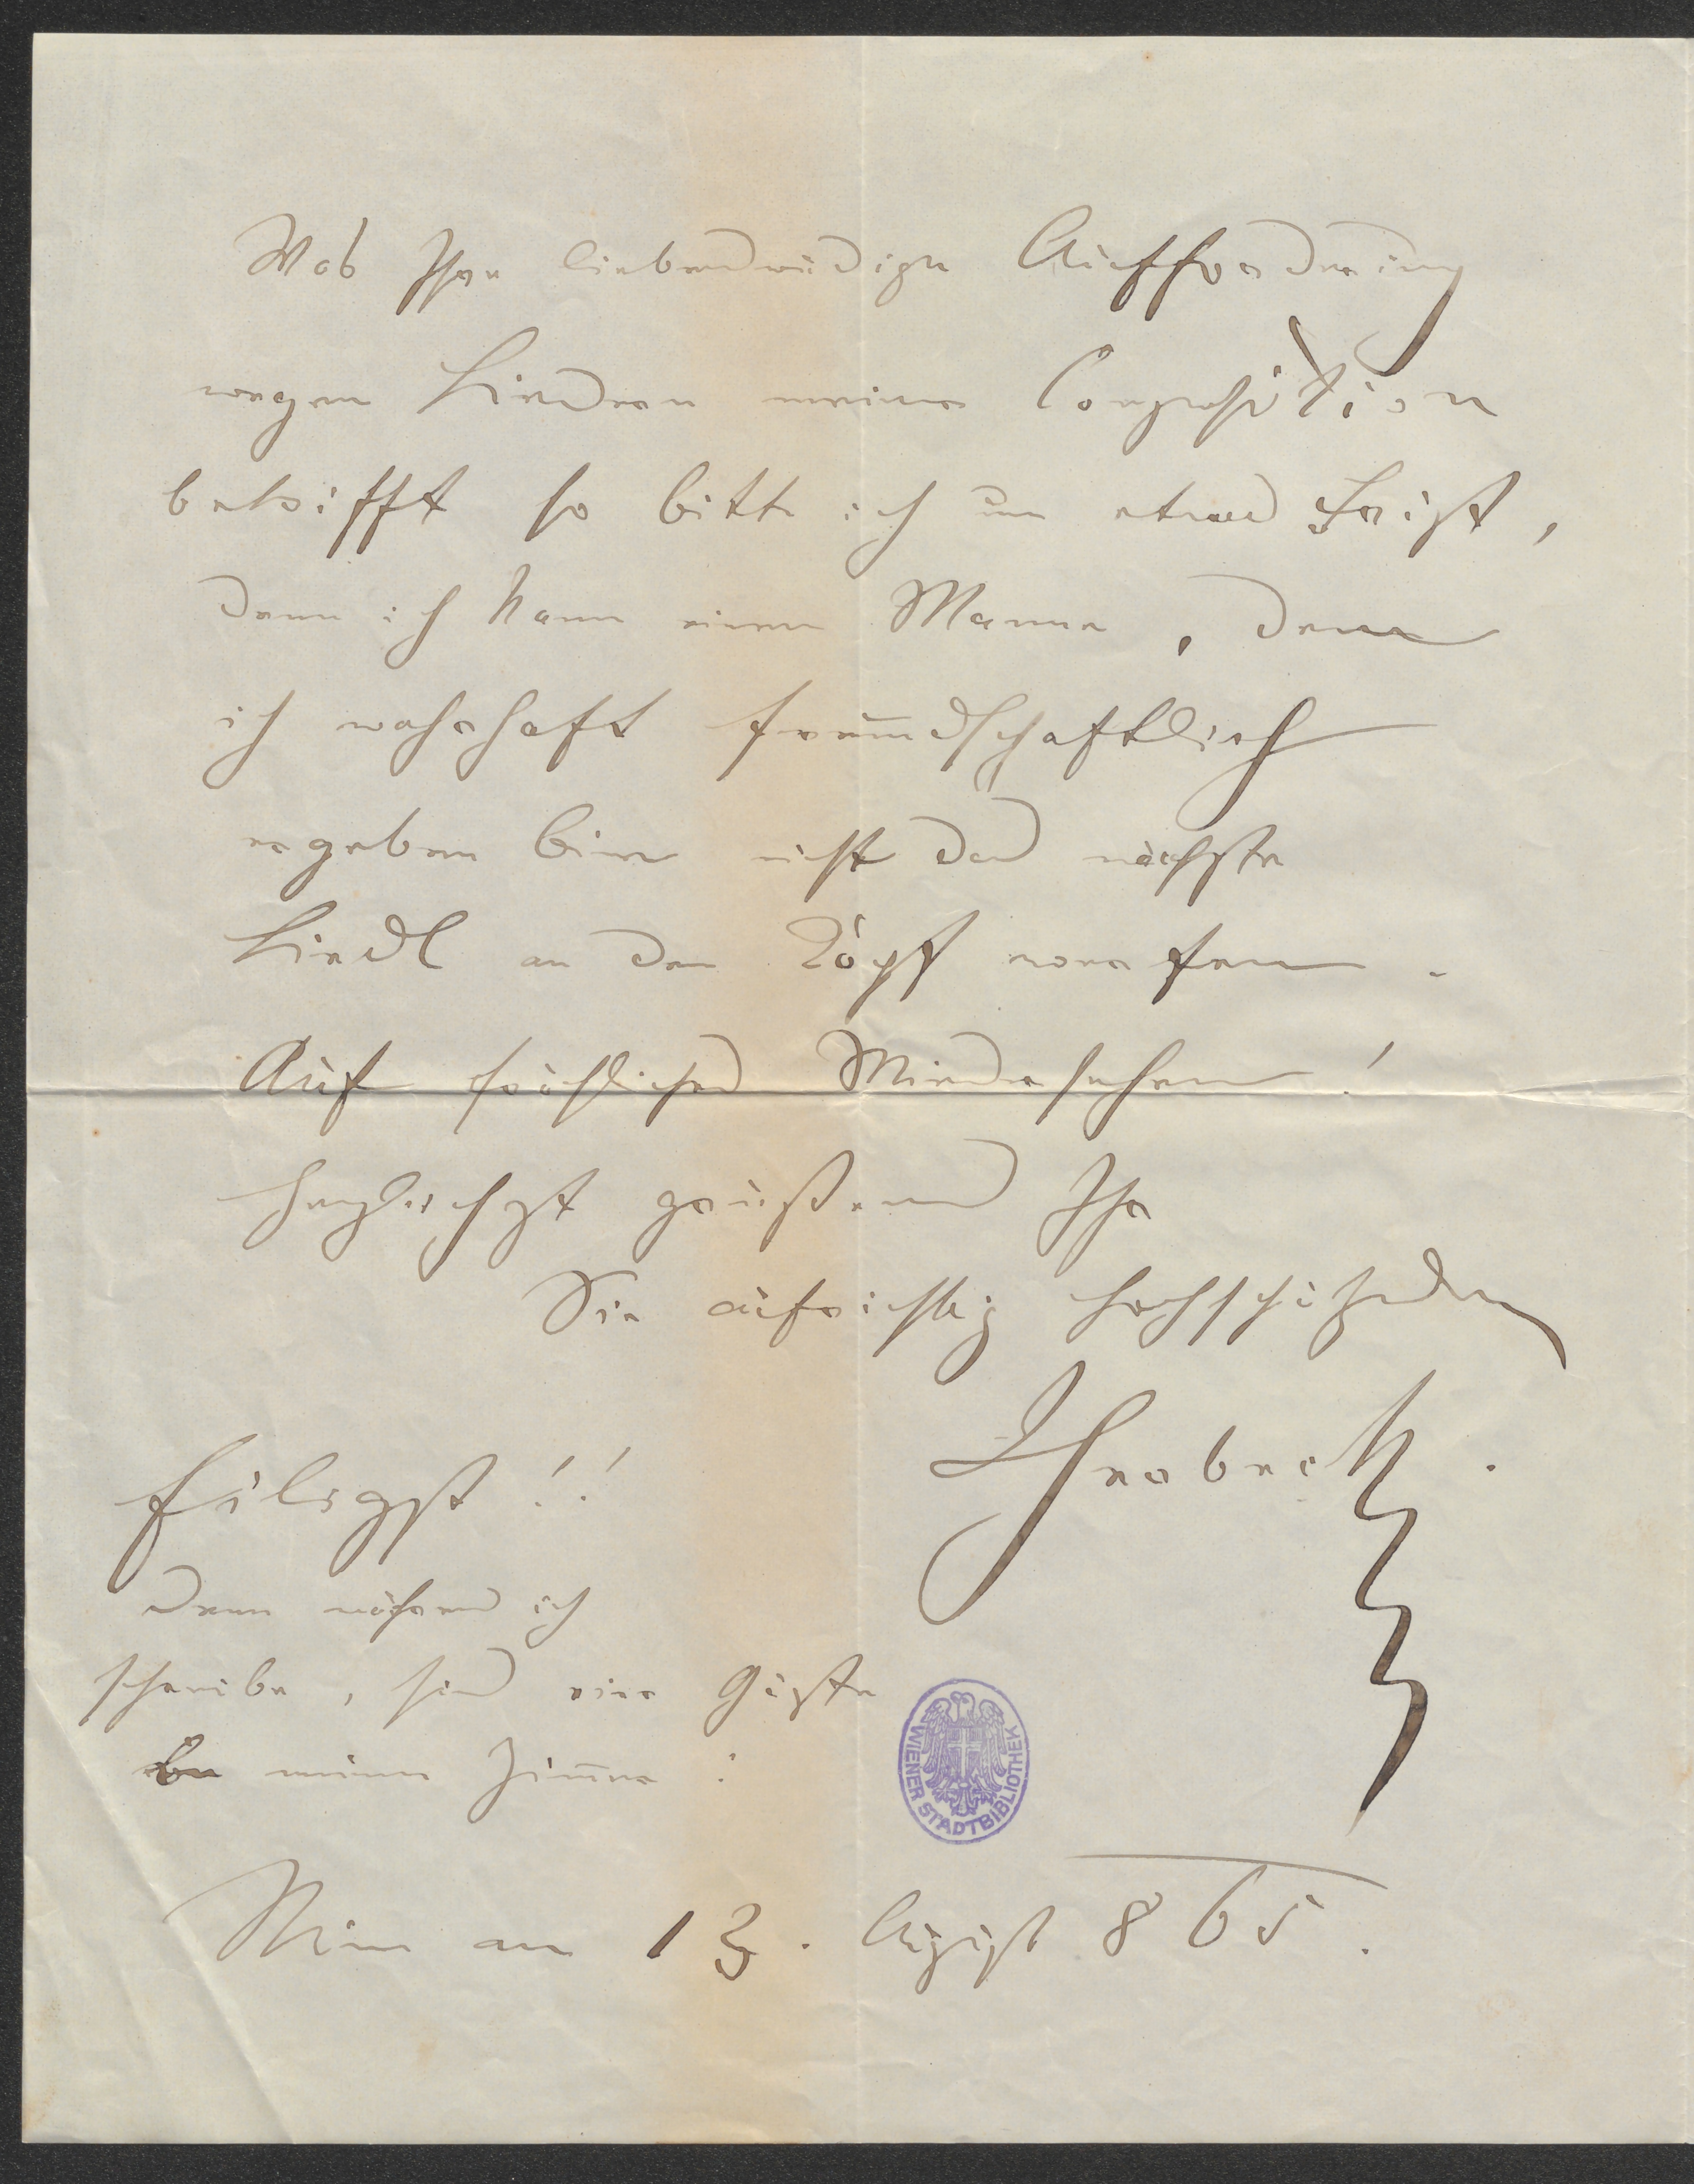 Was Ihre liebenswürdige Aufforderung
wegen Liedern meiner Composition
betrifft so bitte ich um etwas Frist,
denn ich kann einem Manne, dem
ich wahrhaft freundschaftlich
ergeben bin nicht das nächste
Liedl an den Kopf werfen.
Auf fröhliches Wiedersehen!
herzlichst grüßend Ihr
Sie aufrichtig hochschätzender
JHerbeck.
Eiligst!!
Denn während ich
schreibe, sind vier Gäste
in meinem Zimmer
WIENER STADTBIBLIOTHEK
Wien am 13. August 865.